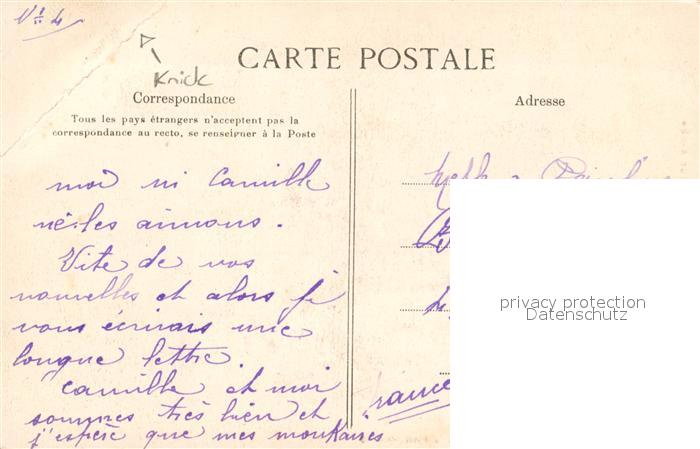 N° 4
Knick
CARTE POSTALE
Correspondance
Tous les pays étrangers n'acceptent pas la
correspondance au recto, se renseigner à la Poste
moi ni Camille
ne les aimons.
Vite de vos
nouvelles et alors je
vous écrirais une
longue lettre.
Camille et moi
sommes très bien et
j'espère que mes
Adresse
France
privacy protection
Datenschutz